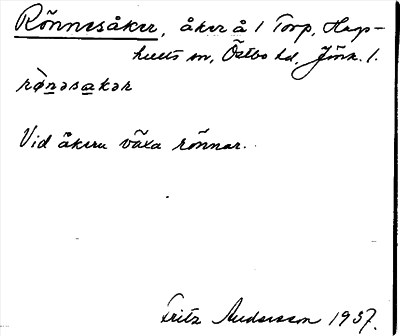 Rönnesåker, åker å 1 Torp, Hags-
hults sn, Östbo hd, Jönk. l.
rǿnəsakər
Vid åkern växa rönnar.
Fritz Andersson 1937.